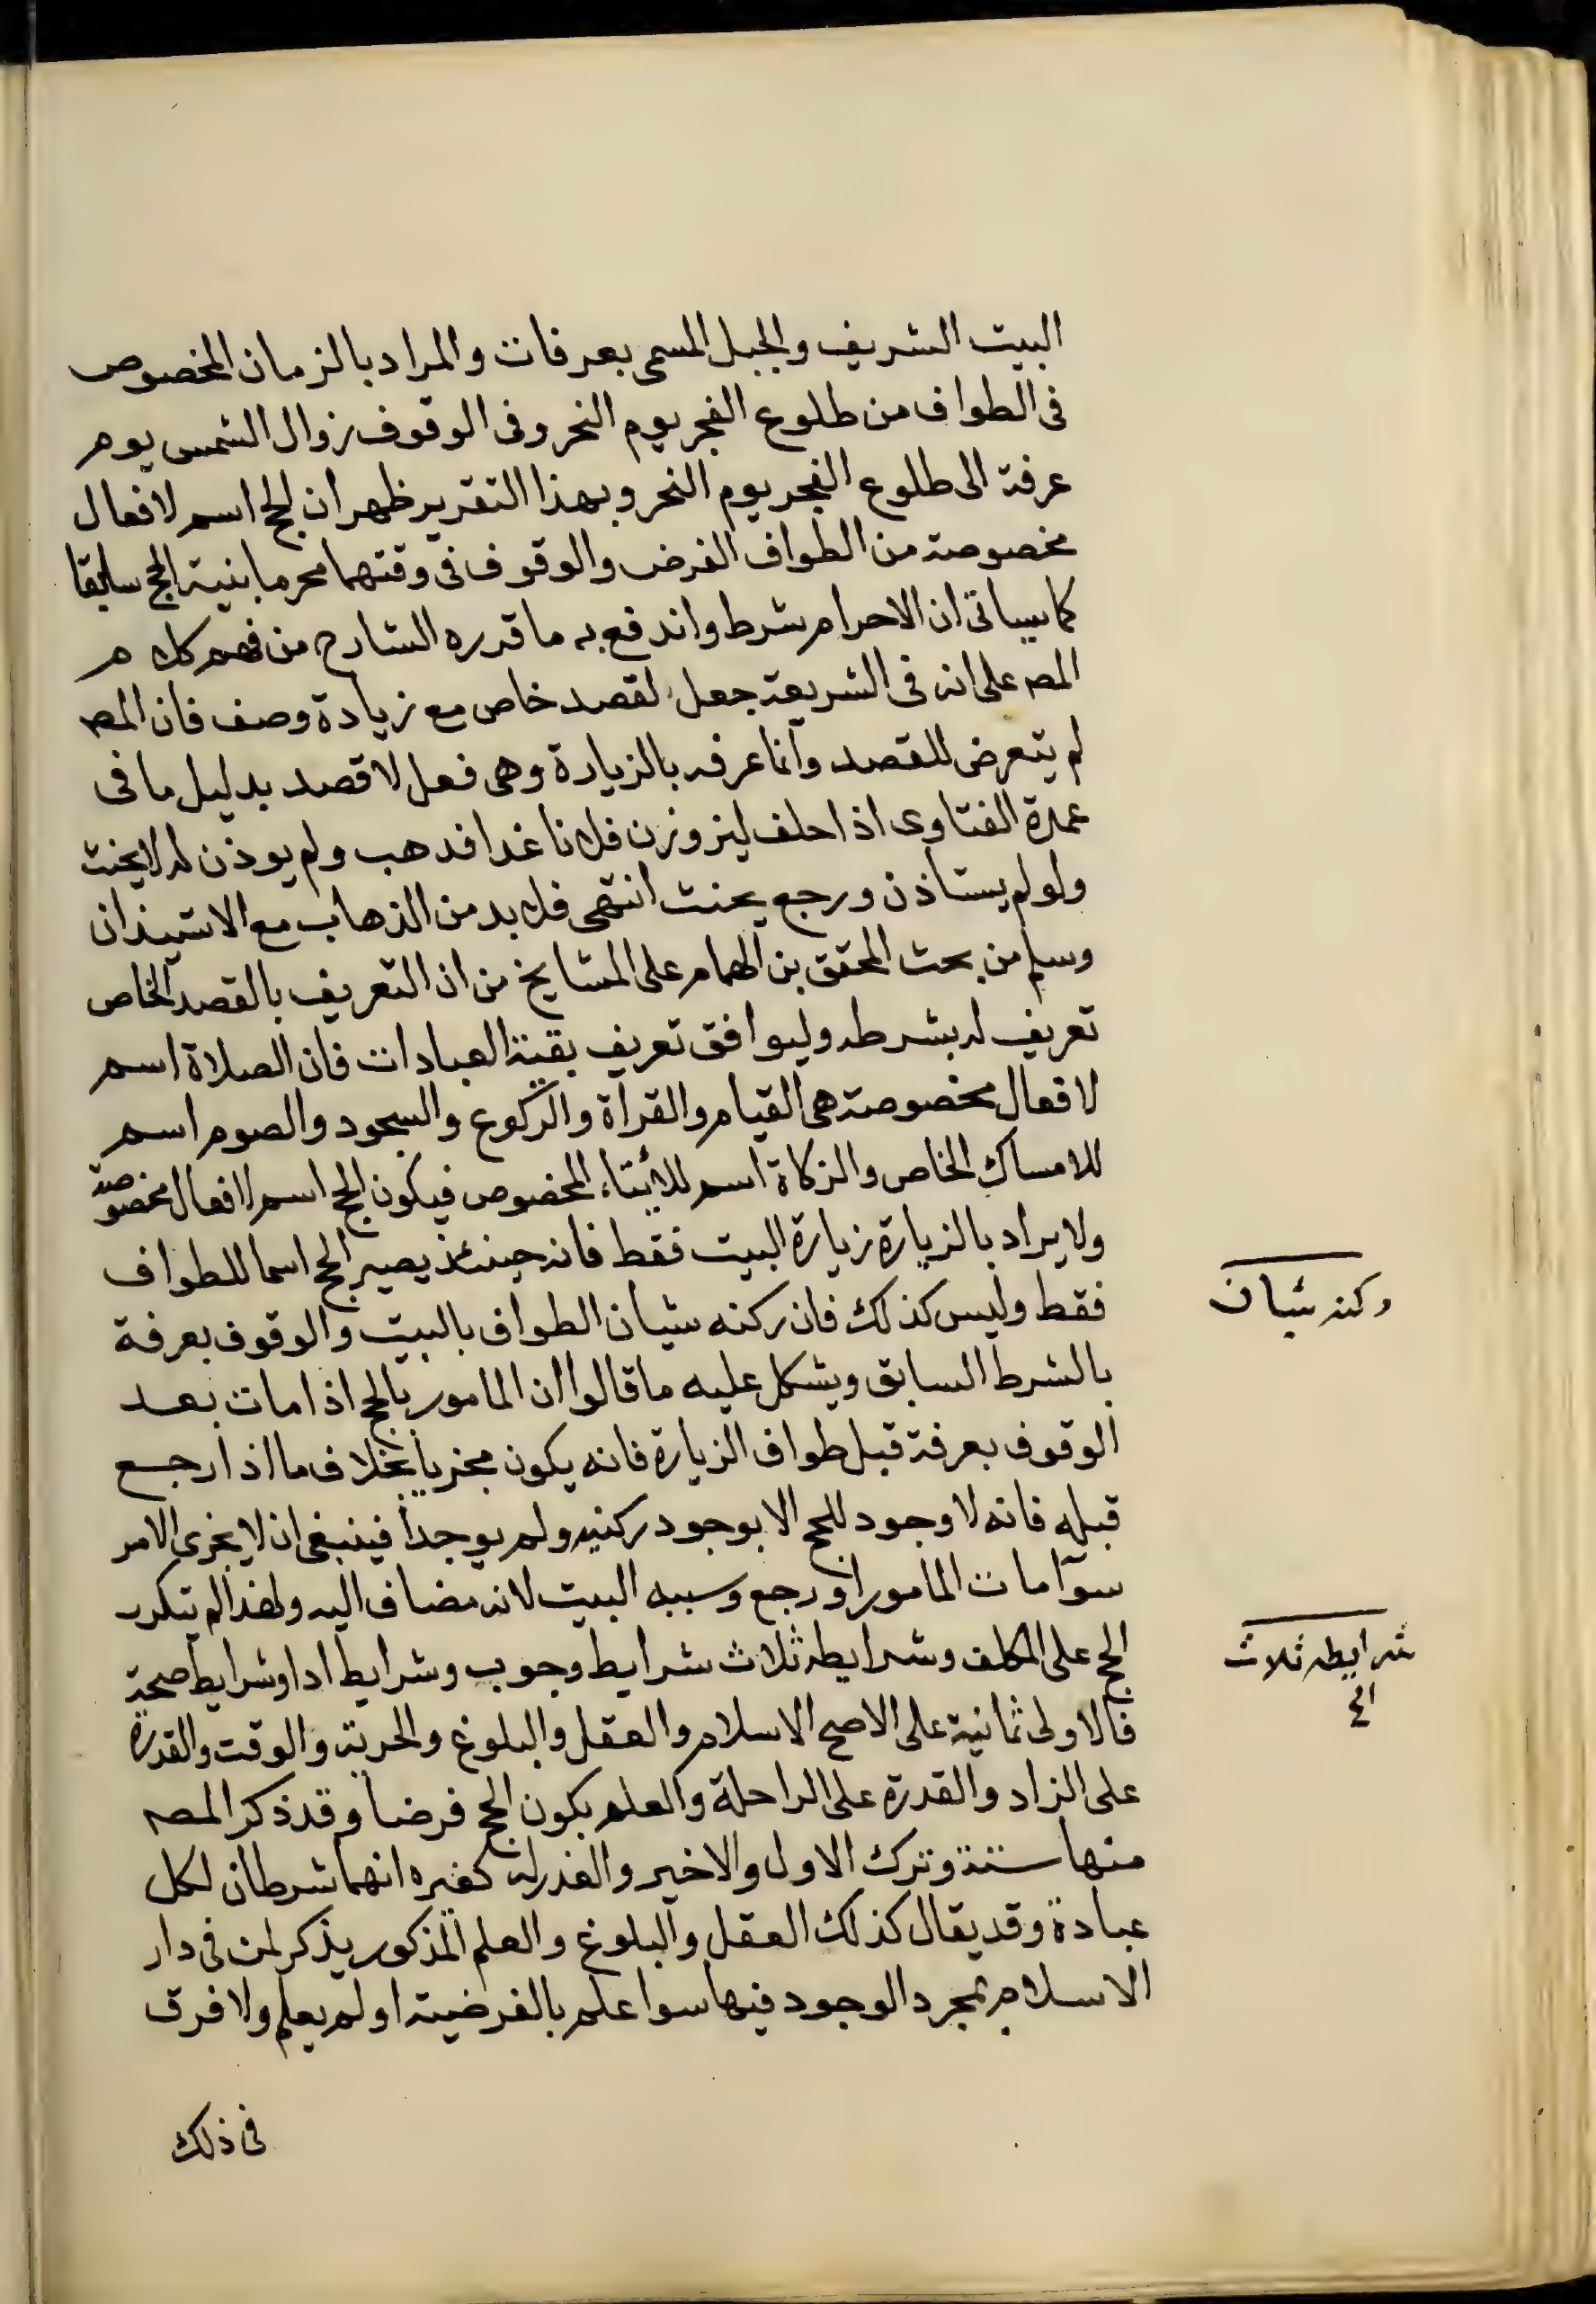 البيت الشريف والجبل المسمى بعرفات والمراد بالزمان المخصوص
فى الطواف من طلوع الفجر يوم النحر وفى الوقوف زوال الشمس يوم
عرفة الى طلوع الفجر يوم النحر وبهذا التقرير ظهر ان الحج اسم لافعال
مخصوصة من الطواف الفرض والوقوف فى وقتهما محرما بنية الحج سابقا
كما سياتى ان الاحرام شرط واندفع به ما قرره الشارح من فهم كلام
المصـ على انه فى الشريعة جعل لقصد خاص مع زيادة وصف فان المصـ
لم يتعرض للقصد وانما عرفه بالزيارة وهى فعل لا قصد بدليل ما فى
عمدة الفتاوى اذا حلف ليزورن فلانا غدا فدهب ولم يوذن له لا يحنث
ولو لم يستاذن ورجع يحنث انتهى فلا بد من الذهاب مع الاستيذان
وسلم من بحث المحقق بن الهمام على المشايخ من ان التعريف بالقصد الخاص
تعريف له بشرطه وليوافق تعريف بقية العبادات فان الصلاة اسم
لافعال مخصوصة هى القيام والقرآة والركوع والسجود والصوم اسم
للامساك الخاص والزكاة اسم للايتاء المخصوص فيكون الحج اسم لافعال مخصوصة
ولا يراد بالزيارة زيارة البيت فقط فانه حينئذ يصير الحج اسما للطواف
فقط وليس كذلك فان ركنه شيان الطواف بالبيت والوقوف بعرفة
وركنه شيان
بالشرط السابق ويشكل عليه ما قالوا ان المامور بالحج اذا مات بعد
الوقوف بعرفة قبل طواف الزيارة فانه يكون مجزيا بخلاف ما اذا رجع
قبله فانه لا وجود للحج الا بوجود ركنيه ولم يوجدا فينبغى ان لا يجزى الامر
سوآ مات المامور او رجع وسببه البيت لانه مضاف اليه ولهذا لم يتكرر
الحج على المكلف وشرايطه ثلاث شرايط وجوب وشرايط ادا وشرايط صحة
شرايطه ثلاث
فالاولى ثمانية على الاصح الاسلام والعقل والبلوغ والحرية والوقت والقدرة
على الزاد والقدرة على الراحلة والعلم بكون الحج فرضا وقد ذكر المصـ
منها ستة وترك الاول والاخير والعذر له كغيره انهما شرطان لكل
عبادة وقد يقال كذلك العقل والبلوغ والعلم المذكور يذكر لمن فى دار
الاسلام بمجرد الوجود فيها سوا علم بالفرضية اولم يعلم ولا فرق
فى ذلك